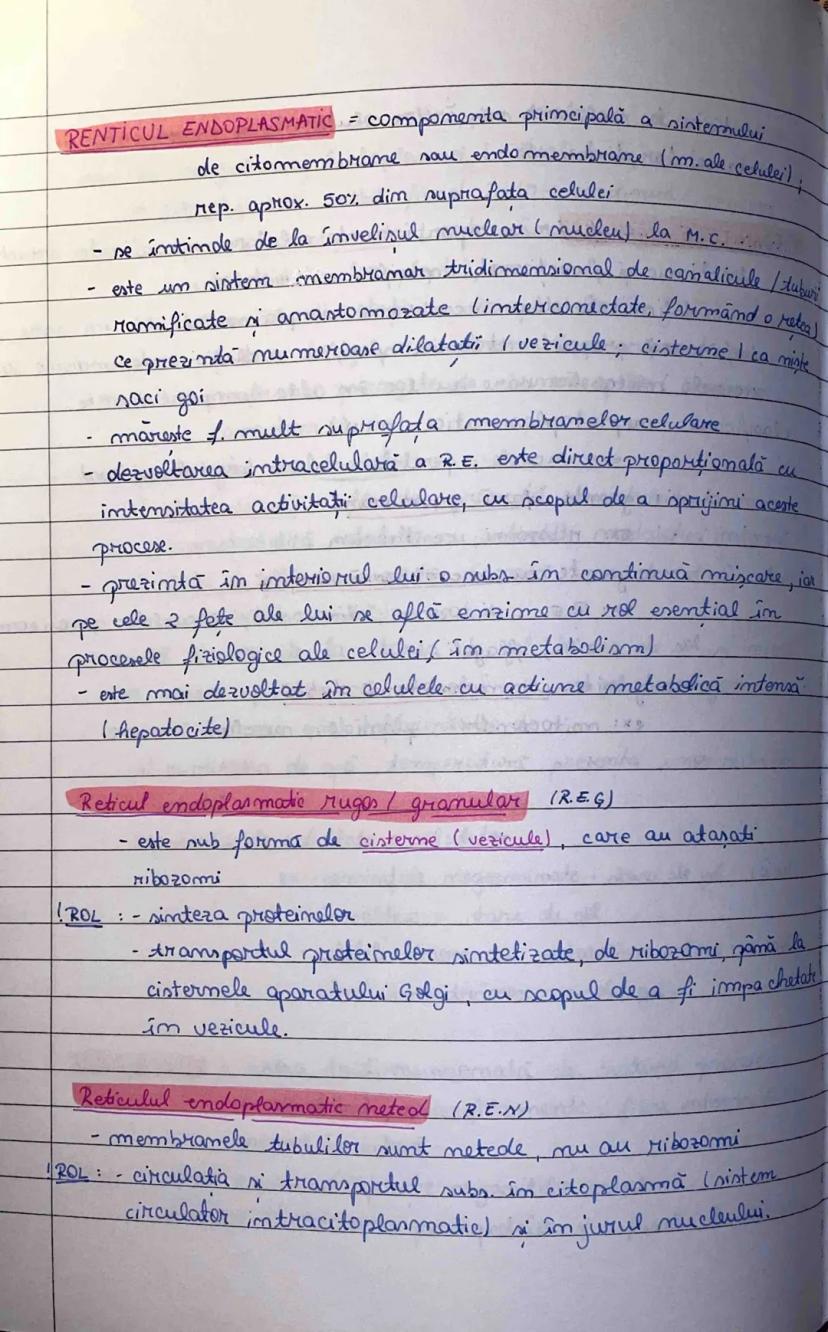 RENTICUL ENDOPLASMATIC = componenta principală a sistemului
de citomembrane sau endomembrane (m. ale celulei);
rep. aprox. 50% din suprafața celulei
- se întinde de la învelișul nuclear (nucleu) la M.C.
- este un sistem membranar tridimensional de canalicule / tuburi
ramificate și anastomozate (interconectate, formând o rețea)
ce prezintă numeroase dilatații (vezicule; cisterne) ca niște
saci goi
- mărește f. mult suprafața membranelor celulare
- dezvoltarea intracelulară a R.E. este direct proporțională cu
intensitatea activității celulare, cu scopul de a sprijini aceste
procese.
- prezintă în interiorul lui o subs. în continuă mișcare, iar
pe cele 2 fețe ale lui se află enzime cu rol esențial în
procesele fiziologice ale celulei (în metabolism)
- este mai dezvoltat în celulele cu acțiune metabolică intensă
(hepatocite)
Reticul endoplasmatic rugos / granular (R.E.G)
- este sub formă de cisterne (vezicule), care au atașați
ribozomi
! ROL : - sinteza proteinelor
- transportul proteinelor sintetizate, de ribozomi, până la
cisternele aparatului Golgi, cu scopul de a fi împachetate
în vezicule.
Reticulul endoplasmatic neted (R.E.N)
- membranele tubulilor sunt netede, nu au ribozomi
! ROL : - circulația și transportul subs. în citoplasmă (sistem
circulator intracitoplasmatic) și în jurul nucleului.